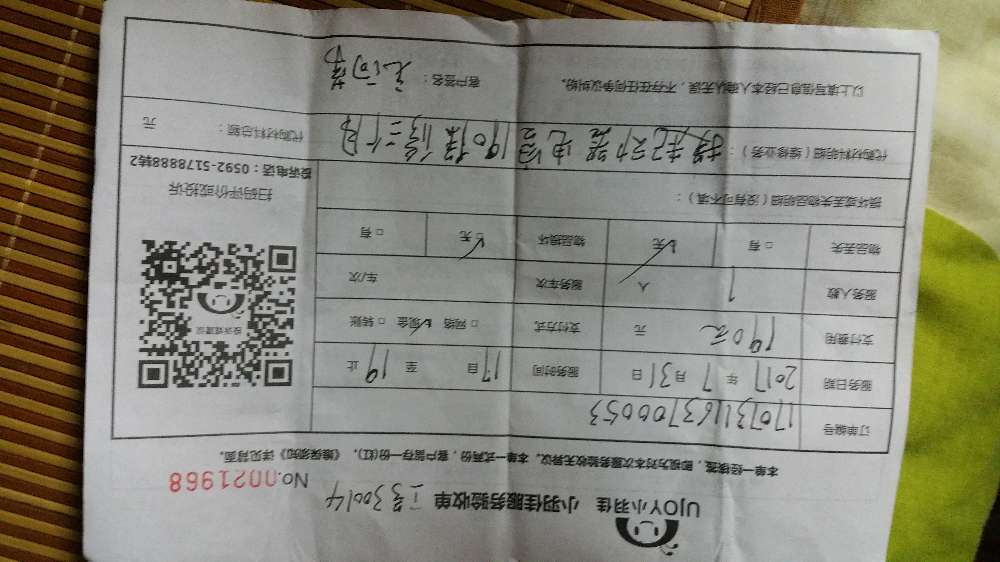 UJOY小羽佳 小羽佳服务验收单 工号30014
No.0021968
本单一经核签，即视为对本次服务验收无异议。本单一式两份，客户留存一份(红)，《维保须知》详见背面。
订单编号 170731163700053
服务日期 2017 年 7 月 31 日 服务时间 17 自 至 19 止
支付费用 190元 元 支付方式 □ 网络 ☑ 现金 □ 转账
服务人数 1 人 服务车次 车/次
物品丢失 □ 有 ☑ 无 物品损坏 ☑ 无 □ 有
损坏或丢失物品明细（没有可不填）：
投诉或建议
扫码评价或投诉
投诉电话：0592-5178888转2
代购材料明细（维修业务）： 换起动器电容 190 保修三个月
代购材料总额： 元
以上填写信息已经本人确认无误，不存在任何争议纠纷。
客户签名：